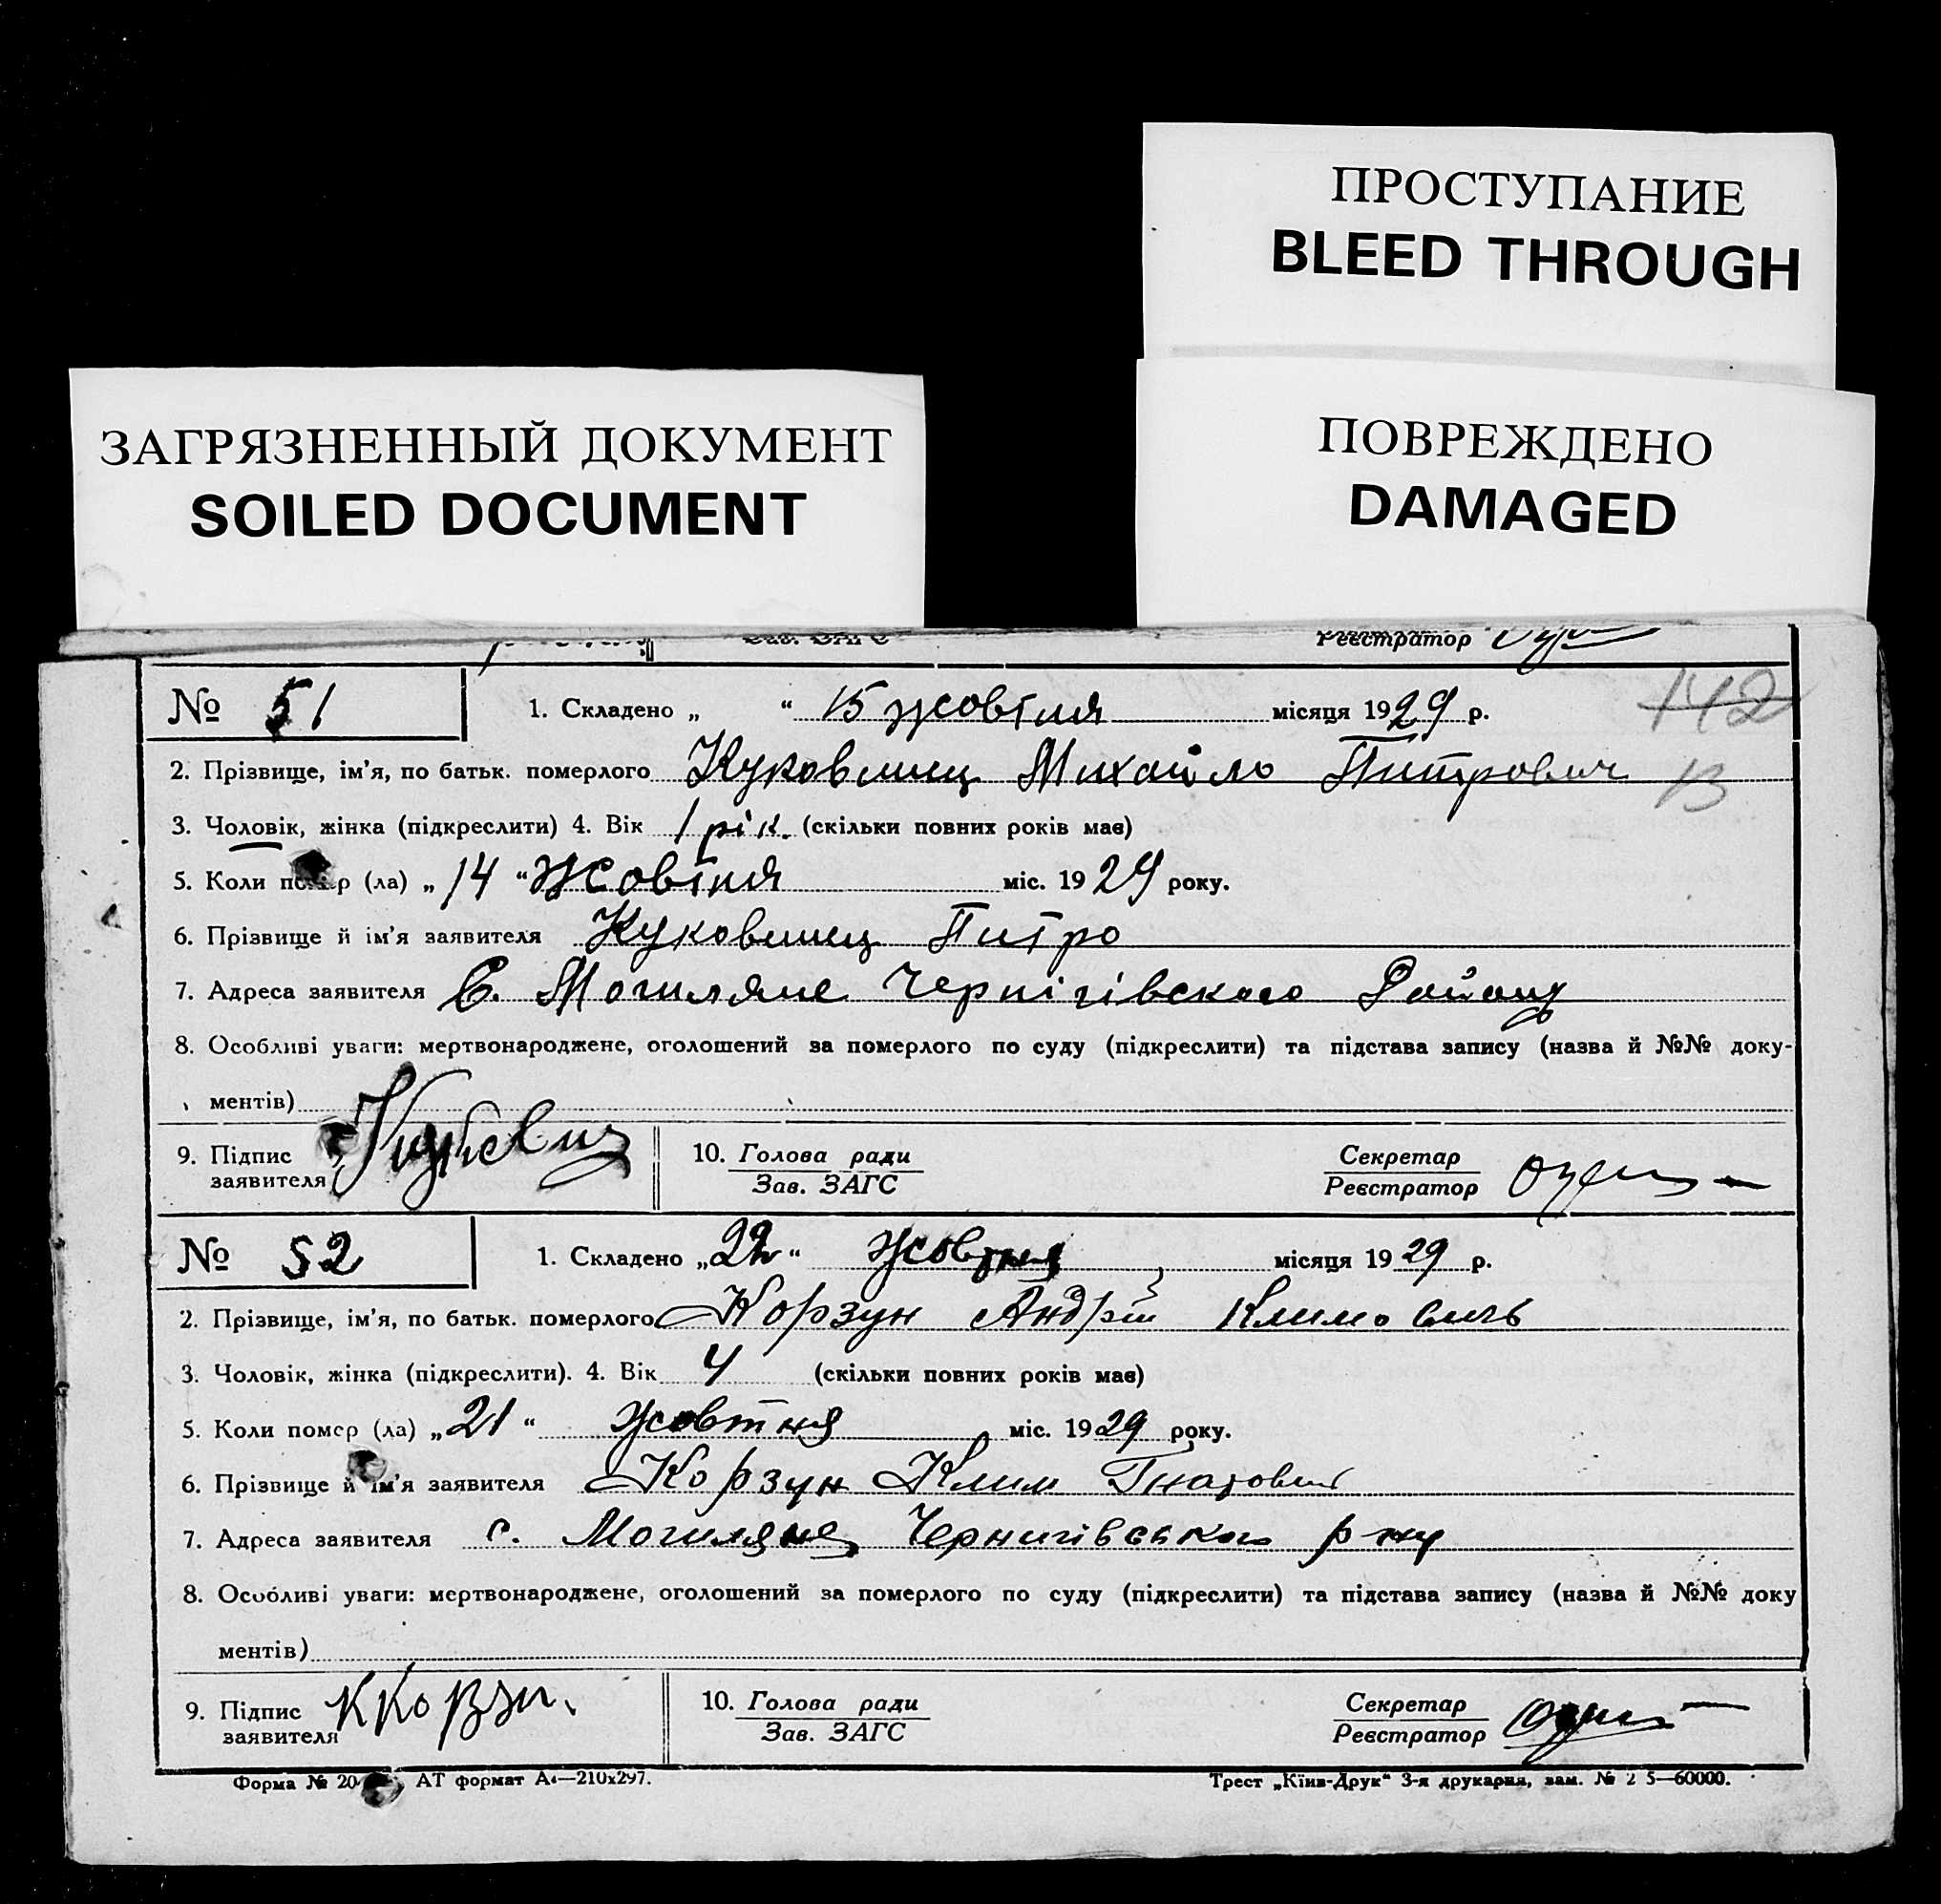 ПРОСТУПАНИЕ
BLEED THROUGH
ЗАГРЯЗНЕННЫЙ ДОКУМЕНТ
SOILED DOCUMENT
ПОВРЕЖДЕНО
DAMAGED
Реєстратор
№ 51 1. Складено „ “ 15 жовтня місяця 1929 р. 142
2. Прізвище, ім'я, по батьк. померлого Куковинец Михайло Питрович 13
3. Чоловік, жінка (підкреслити) 4. Вік 1 рік. (скільки повних років має)
5. Коли помер (ла) „14 “ Жовтня міс. 1929 року.
6. Прізвище й ім'я заявителя Куковинец Питро
7. Адреса заявителя С. Могиляне Чернігівского Району
8. Особливі уваги: мертвонароджене, оголошений за померлого по суду (підкреслити) та підстава запису (назва й №№ доку-
ментів)
9. Підпис заявителя 10. Голова ради Зав. ЗАГС Секретар Реєстратор
№ 52 1. Складено „22“ жовтня місяця 1929 р.
2. Прізвище, ім'я, по батьк. померлого Корзун Андрій Климовичь
3. Чоловік, жінка (підкреслити). 4. Вік 4 (скільки повних років має)
5. Коли помер (ла) „21 “ жовтня міс. 1929 року.
6. Прізвище й ім'я заявителя Корзун Клим Гнатович
7. Адреса заявителя с. Могиляне Чернигівського р-ну
8. Особливі уваги: мертвонароджене, оголошений за померлого по суду (підкреслити) та підстава запису (назва й №№ доку
ментів)
9. Підпис заявителя ККорзн. 10. Голова ради Зав. ЗАГС Секретар Реєстратор
Форма № 20 АТ формат А4—210х297. Трест „Київ-Друк“ 3-я друкарня, зам. № 2 5—60000.